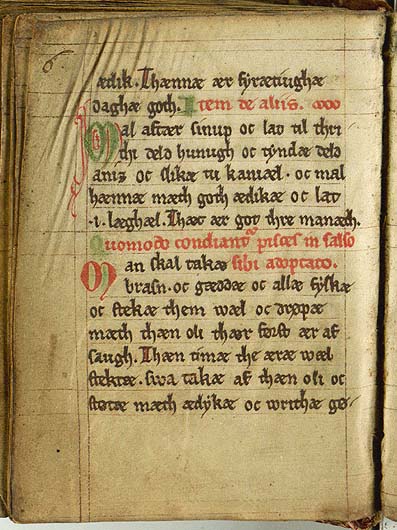 6
ædik. Thænnæ ær fyrætiughæ
daghæ goth. Item de aliis.
Mal aftær sinup oc lat til thri
thi deld hunugh oc tyndæ deld
aniz oc slikæ tu kaniæl. oc mal
hænnæ mæth goth ædikæ oc lat
.i. læghæl. Thæt ær got thre manæth.
Quomodo condiantr pisces in salso
Man skal takæ sibi adoptato.
brasn. oc gæddæ oc allæ fyskæ
oc stekæ them wæl oc dræpæ
mæth thæn oli thær først ær af
saugh. Thæn timæ the æræ wæl
stektæ. swa takæ af thæn oli oc
støtæ mæth ædykæ oc writhæ gø